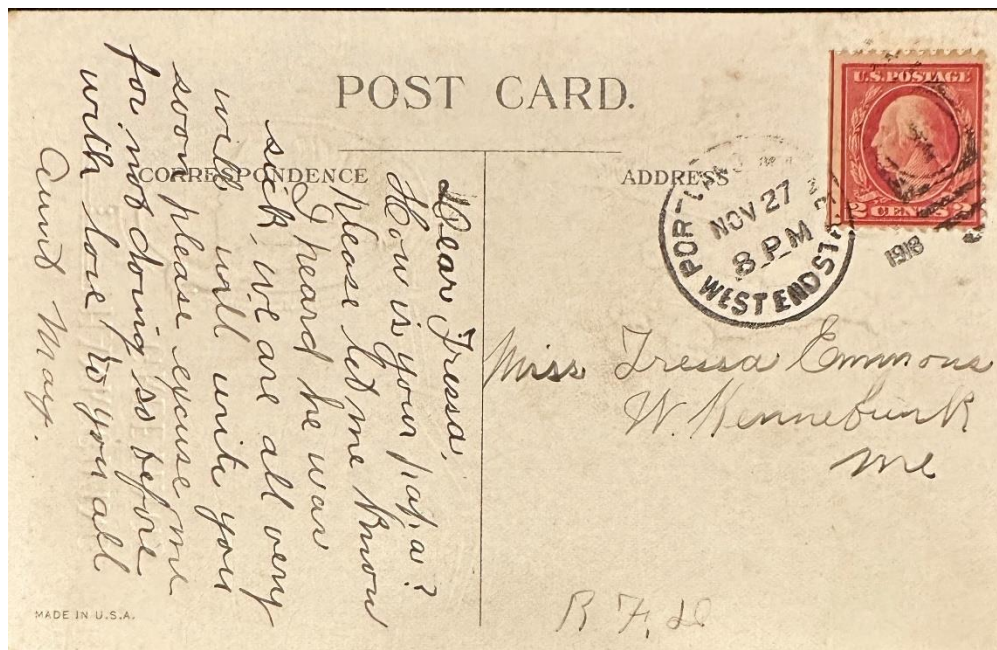 POST CARD.
CORRESPONDENCE
ADDRESS
U.S. POSTAGE
2 CENTS 2
NOV 27
8 PM
1918
WEST END STA
Dear Tressa,
How is your papa?
please let me know
I heard he was
sick, we are all very
well will write you
soon please excuse me
for not doing so before
with love to you all
Aunt May.
Miss Tressa Emmons
W. Kennebunk
Me
R F. D
MADE IN U.S.A.